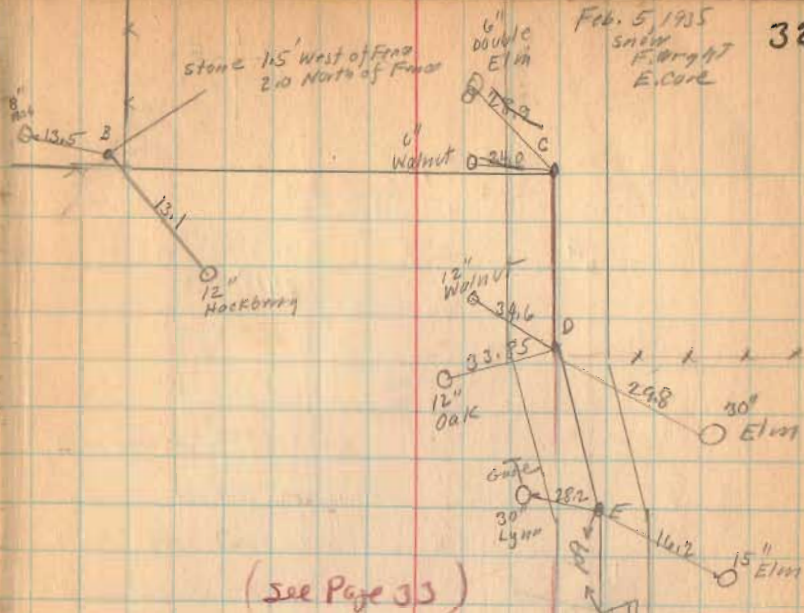 Feb. 5, 1935
32
Snow
F. Wright
E. Core
6"
Double
Elm
Stone 1.5' West of Fence
2.0 North of Fence
8"
13.5
B
28.9
C
6"
Walnut
24.0
13.1
12"
Hackberry
12"
Walnut
34.6
D
33.85
12"
Oak
29.8
30"
Elm
Gate
28.2
E
30"
Lynn
16.2
15"
Elm
(See Page 33)